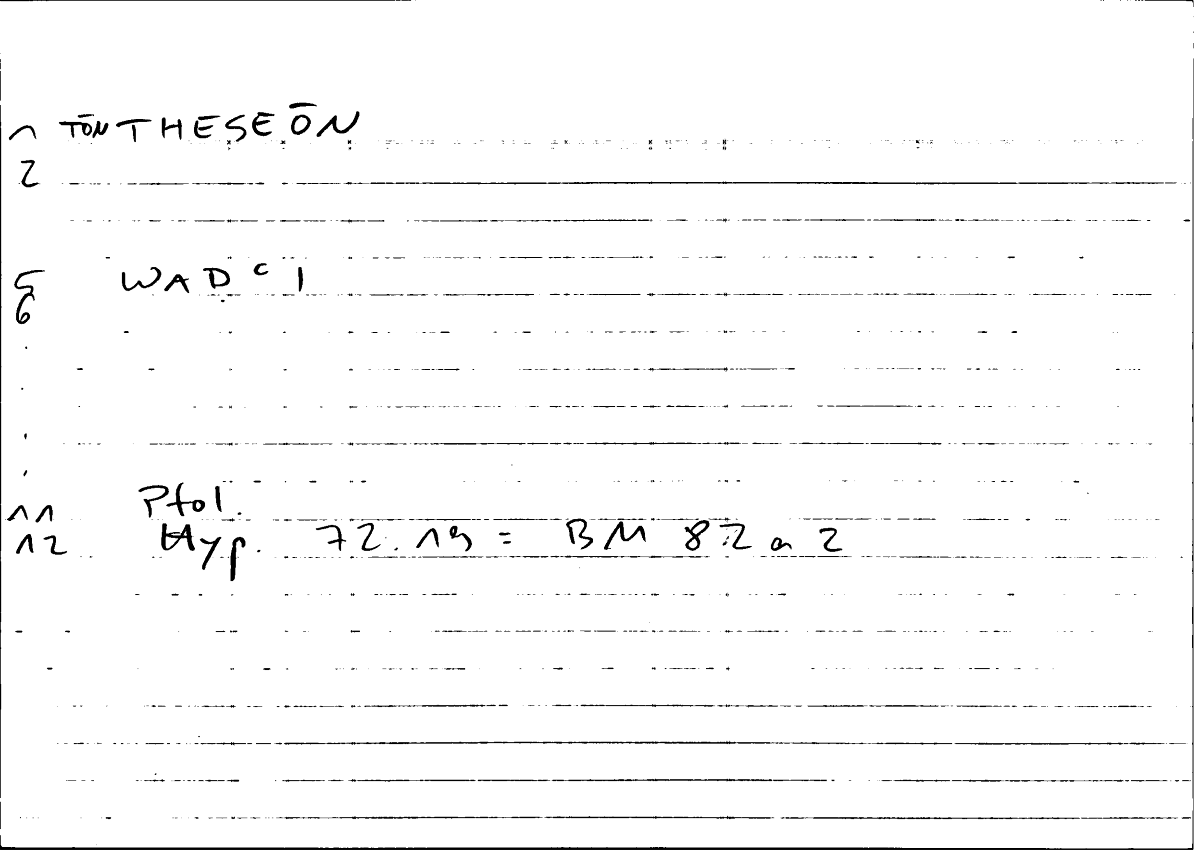 1 TŌN THESEŌN
2
5 WAḌ ʿ 1
6
.
.
.
.
11 Ptol.
12 Hyp. 72.19 = BM 82 a 2